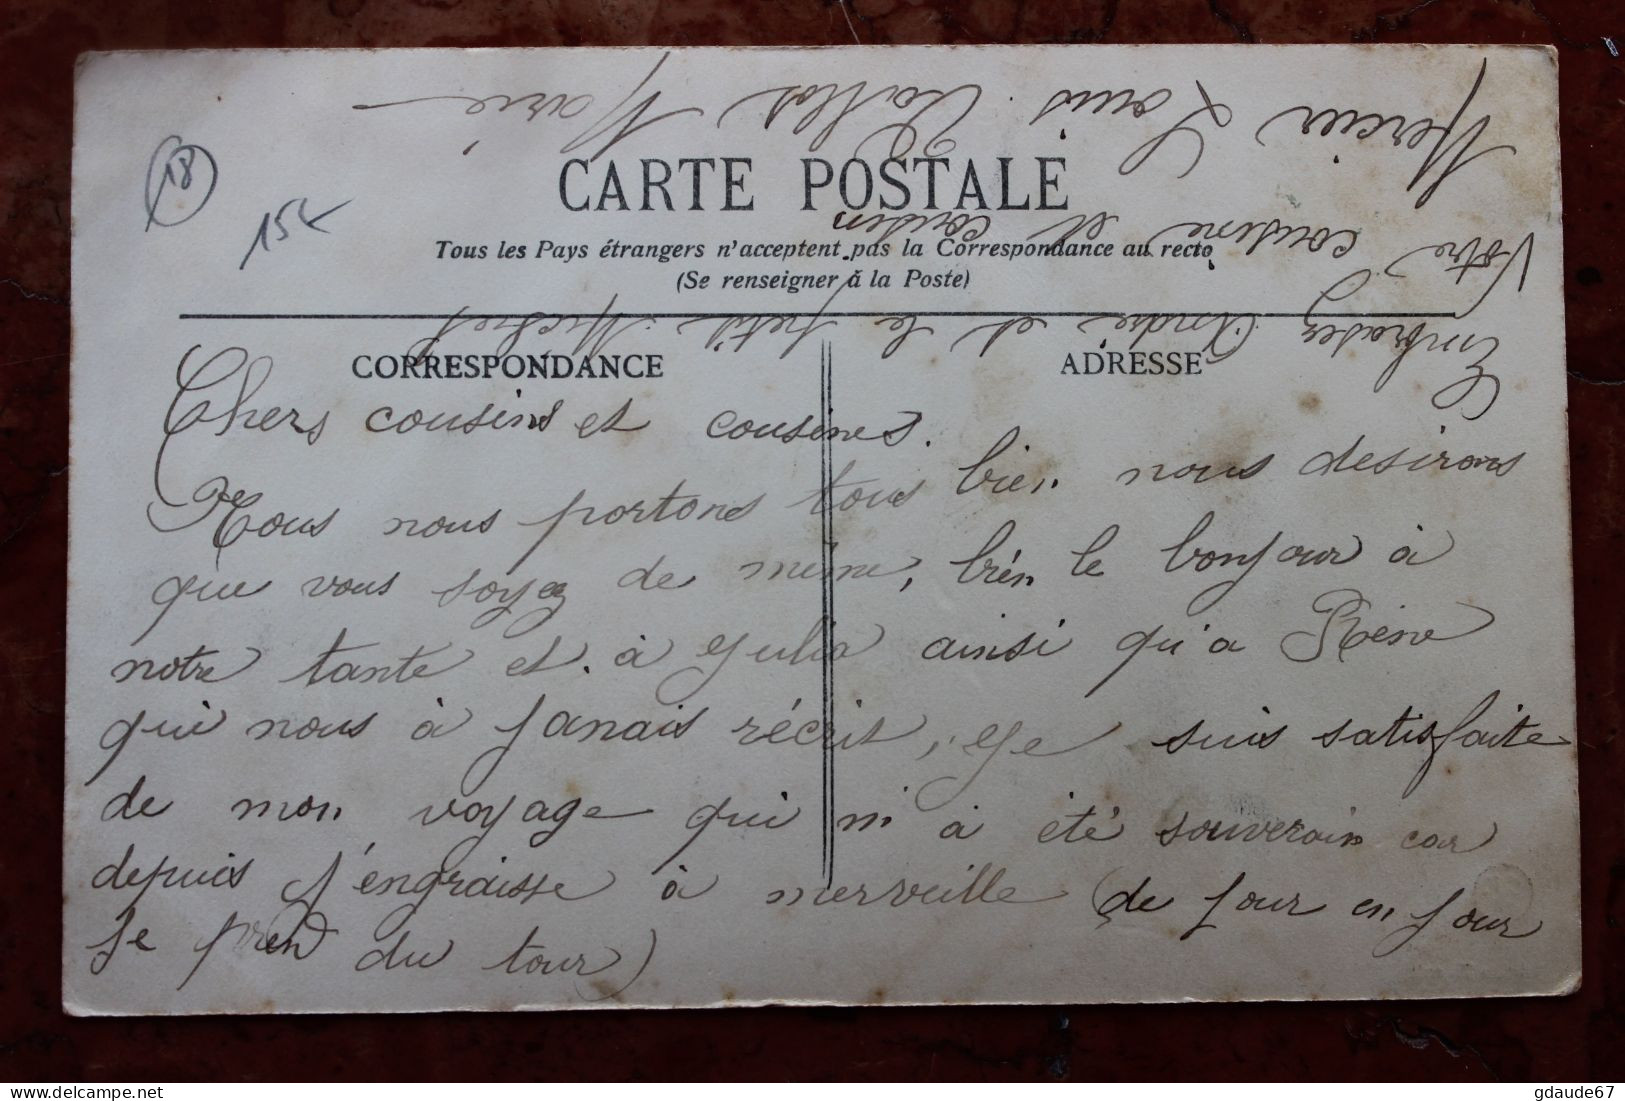 18
15€
CARTE POSTALE
Tous les Pays étrangers n'acceptent pas la Correspondance au recto
(Se renseigner à la Poste)
CORRESPONDANCE
ADRESSE
Chers cousins et cousines.
Nous nous portons tous bien nous desirons
que vous soyez de même, bien le bonjour à
notre tante et à Julia ainsi qu'a Réne
qui nous à janais récrit, je suis satisfaite
de mon voyage qui m'à été souverain car
depuis j'engraisse à merveille (de jour en jour
je prend du tour)
Embrassez André et le petit Michel
Votre cousine et cousin
Mercier Louis Marie
gdaude67